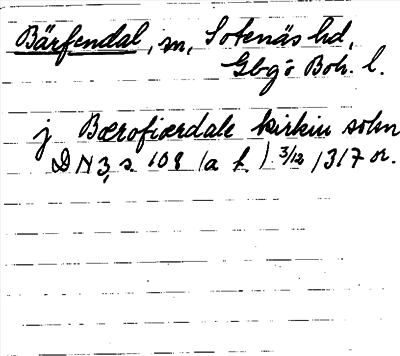 Bärfendal, sn, Sotenäs hd,
Gbgs o Boh. l.
j Bærofiærdale kirkiu sokn
DN 3, s. 108 (a f.) 3/12 1317 or.